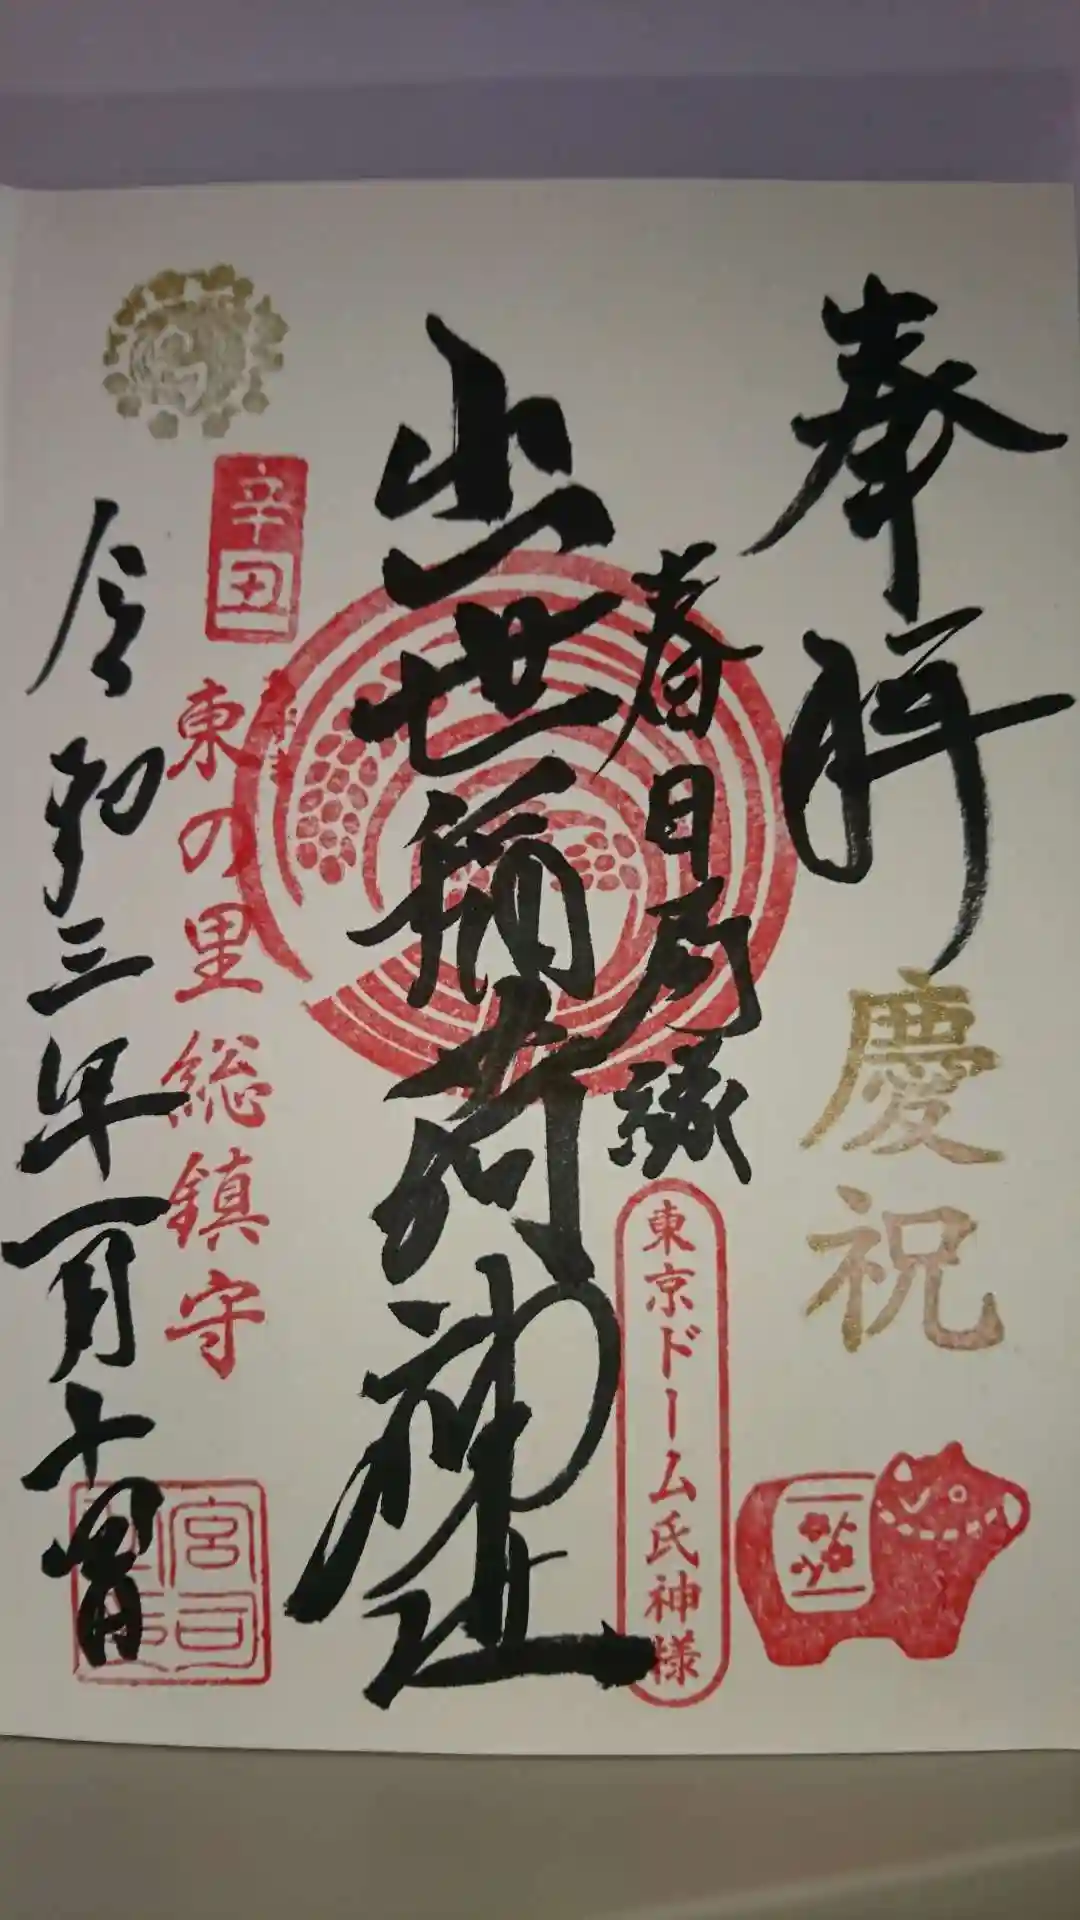 奉拝
慶祝
春日局縁
東京ドーム氏神様
出世稲荷神社
辛丑
東の里総鎮守
令和三年一月十四日
宮司